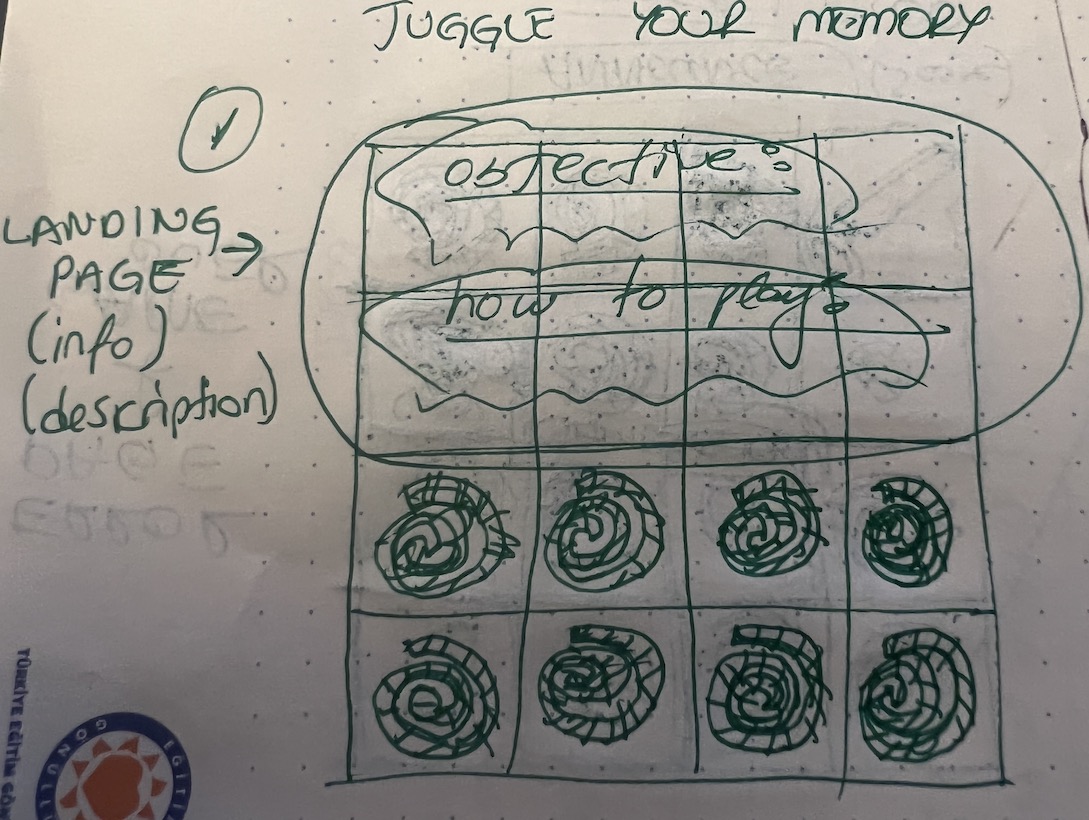 JUGGLE YOUR MEMORY
1
LANDING →
PAGE
(info)
(description)
objective:
how to play:
TÜRKİYE EĞİTİM GÖN
GÖNÜLL
EĞİTİ